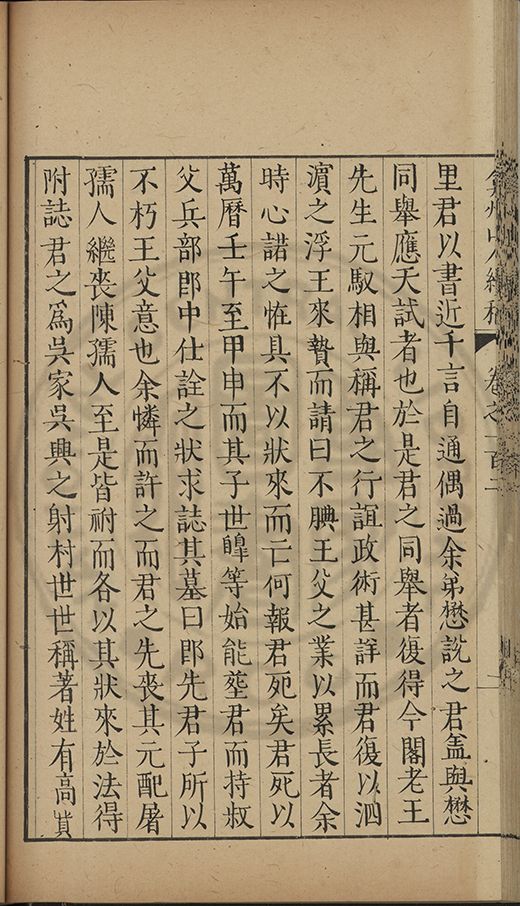 卷之一百二
里君以書近千言自通偶過余弟懋說之君盖與懋
同舉應天試者也於是君之同舉者復得今閣老王
先生元馭相與稱君之行誼政術甚詳而君復以泗
濵之浮王來贄而請曰不腆王父之業以累長者余
時心諾之恠具不以狀來而亡何報君死矣君死以
萬曆壬午至甲申而其子世皥等始能塟君而持叔
父兵部郎中仕詮之狀求誌其墓曰郎先君子所以
不朽王父意也余憐而許之而君之先喪其元配屠
孺人繼喪陳孺人至是皆祔而各以其狀來於法得
附誌君之爲吳家吳興之射村世世稱著姓有高貲